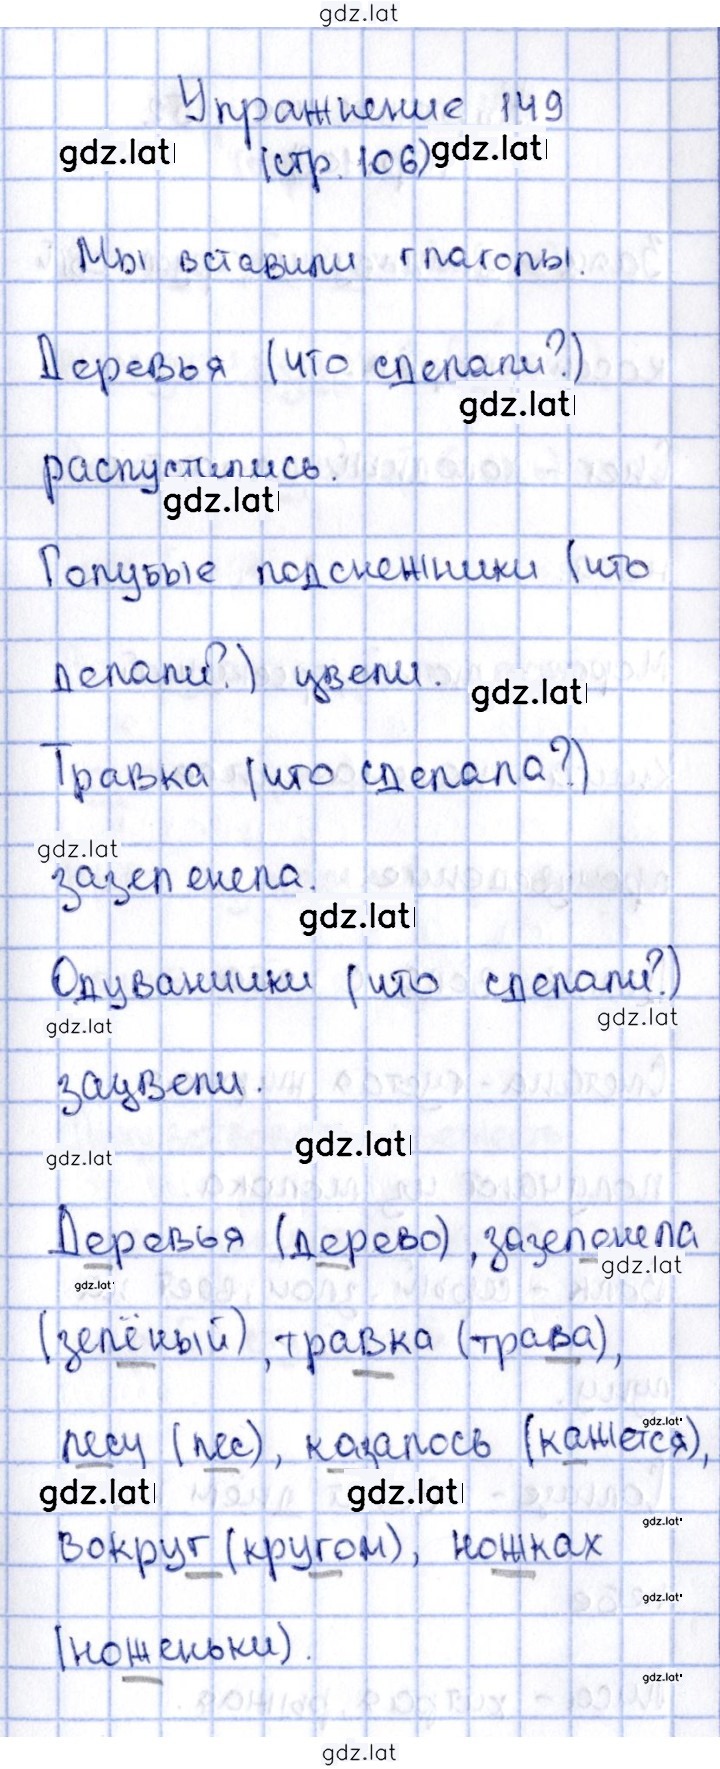 gdz.lat
Упражнение 149
gdz.lat (стр. 106) gdz.lat
Мы вставили глаголы.
Деревья (что сделали?)
gdz.lat
распустились.
gdz.lat
Голубые подснежники (что
делали?) цвели.
gdz.lat
Травка (что сделала?)
gdz.lat
зазеленела.
gdz.lat
Одуванчики (что сделали?)
gdz.lat gdz.lat
зацвели.
gdz.lat
gdz.lat
Деревья (дерево), зазеленела
gdz.lat
gdz.lat
(зелёный), травка (трава),
gdz.lat
лесу (лес), казалось (кажется),
gdz.lat gdz.lat
gdz.lat
вокруг (кругом), ножках
gdz.lat
(ноженьки).
gdz.lat
gdz.lat